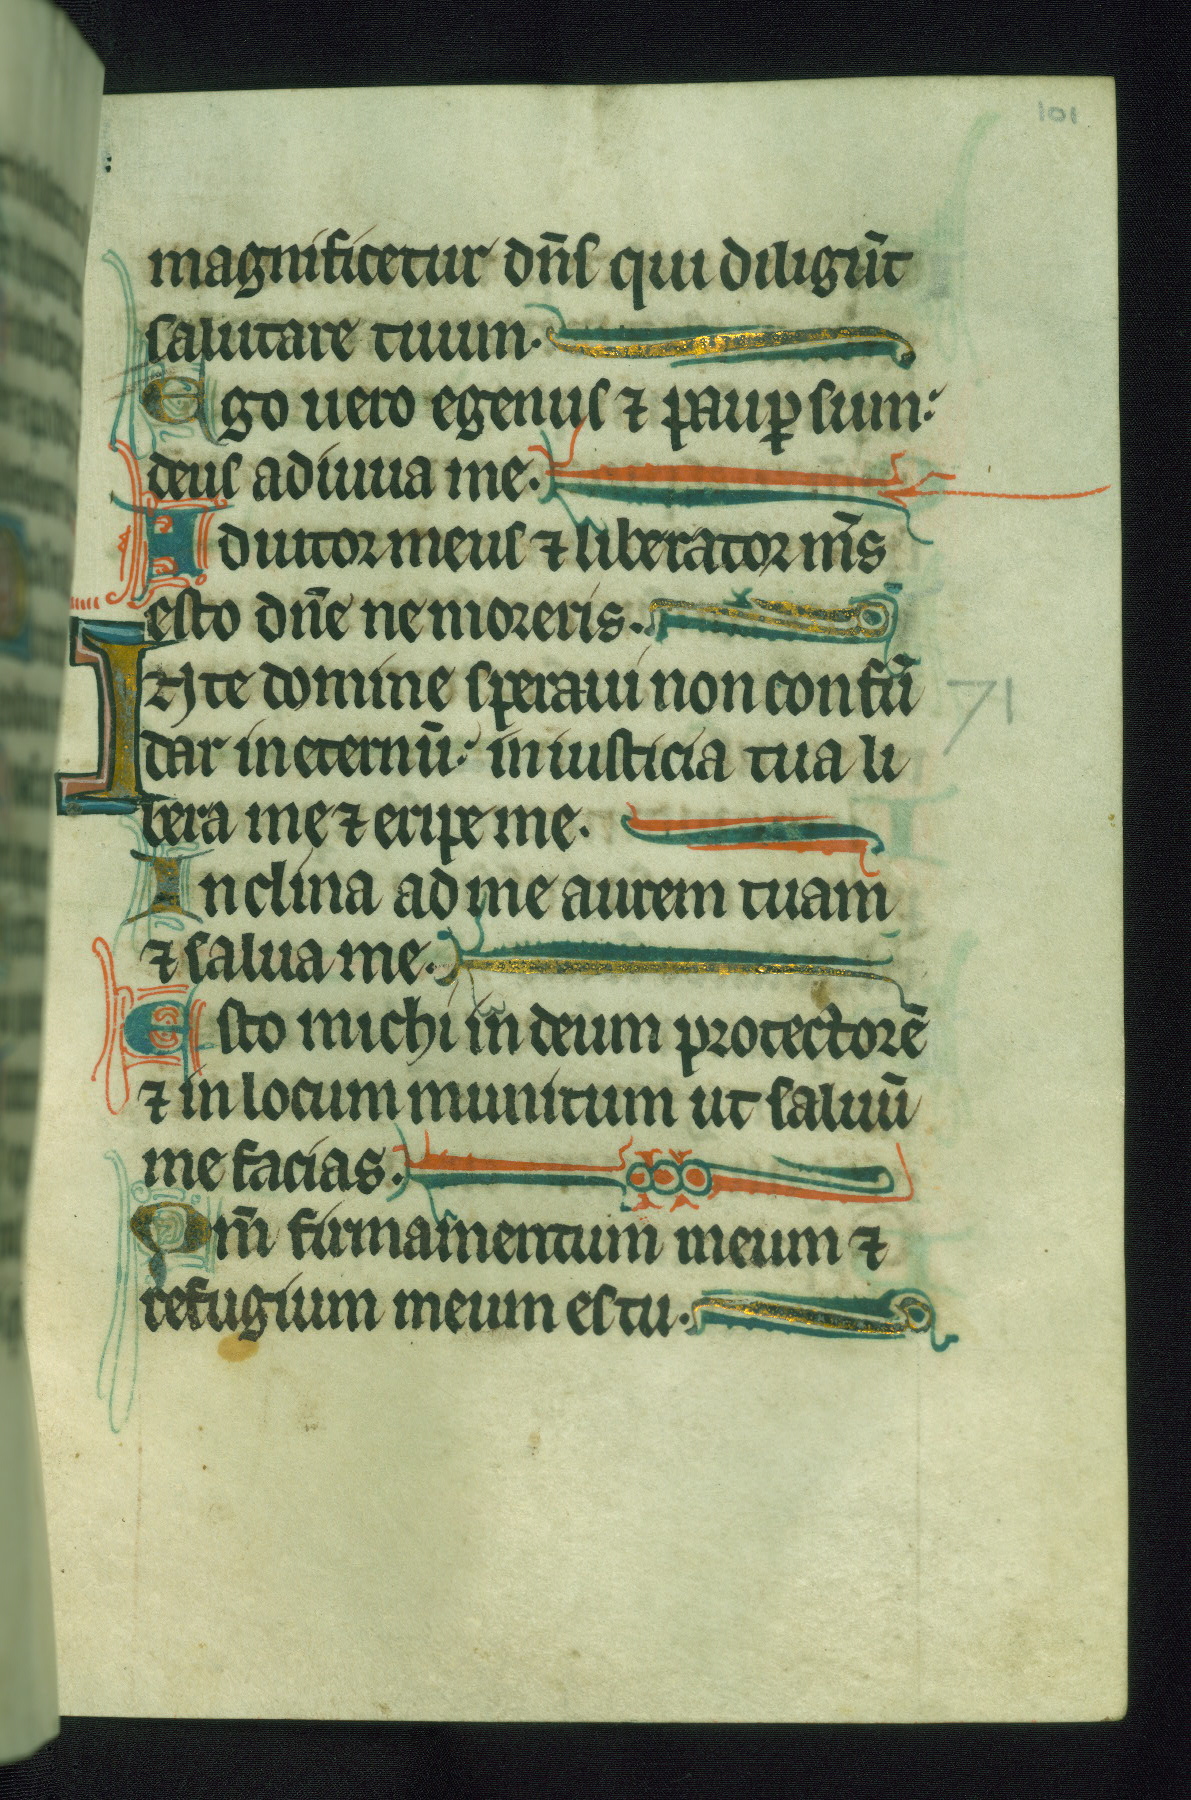 101
magnificetur dn̄s qui diligūt
salutare tuum.
Ego uero egenus ⁊ paup̱ sum:
deus adiuua me.
Adiutor meus ⁊ liberator m̄s
esto dn̄e ne moreris.
IN te domine speraui non confū
dar in eternū: in iusticia tua li
bera me ⁊ eripe me.
Inclina ad me aurem tuam
⁊ salua me.
Esto michi in deum protectorē
⁊ in locum munitum ut saluū
me facias.
Qm̄ firmamentum meum ⁊
refugium meum es tu.
71